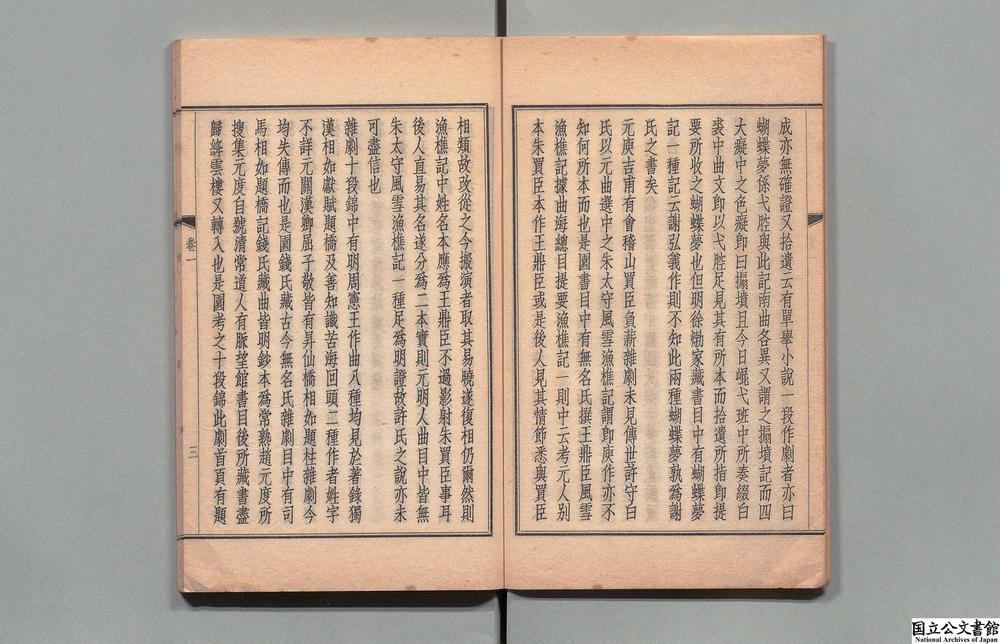 成亦無確證又拾遺云有單舉小說一段作劇者亦曰
蝴蝶夢係弋腔與此記南曲各異又謂之搧墳記而四
大癡中之色癡卽曰搧墳且今日崐弋班中所奏綴白
裘中曲文卽以弋腔足見其有所本而拾遺所指卽提
要所收之蝴蝶夢也但明徐𤊹家藏書目中有蝴蝶夢
記一種記云謝弘義作則不知此兩種蝴蝶夢孰爲謝
氏之書矣
元庾吉甫有會稽山買臣負薪雜劇未見傳世許守白
氏以元曲選中之朱太守風雪漁樵記謂卽庾作亦不
知何所本而也是園書目中有無名氏撰王鼎臣風雪
漁樵記據曲海總目提要漁樵記一則中云考元人別
本朱買臣本作王鼎臣或是後人見其情節悉與買臣
相類故改從之今搬演者取其易曉遂復相仍爾然則
漁樵記中姓名本應爲王鼎臣不過影射朱買臣事耳
後人直易其名遂分爲二本實則元明人曲目中皆無
朱太守風雪漁樵記一種足爲明證故許氏之說亦未
可盡信也
雜劇十段錦中有明周憲王作曲八種均見於著錄獨
漢相如獻賦題橋及善知識苦海回頭二種作者姓字
不詳元關漢卿屈子敬皆有昇仙橋相如題柱雜劇今
均失傳而也是園錢氏藏古今無名氏雜劇目中有司
馬相如題橋記錢氏藏曲皆明鈔本爲常熟趙元度所
搜集元度自號淸常道人有脈望館書目後所藏書盡
歸絳雲樓又轉入也是園考之十段錦此劇首頁有題
卷一
三
国立公文書館
National Archives of Japan